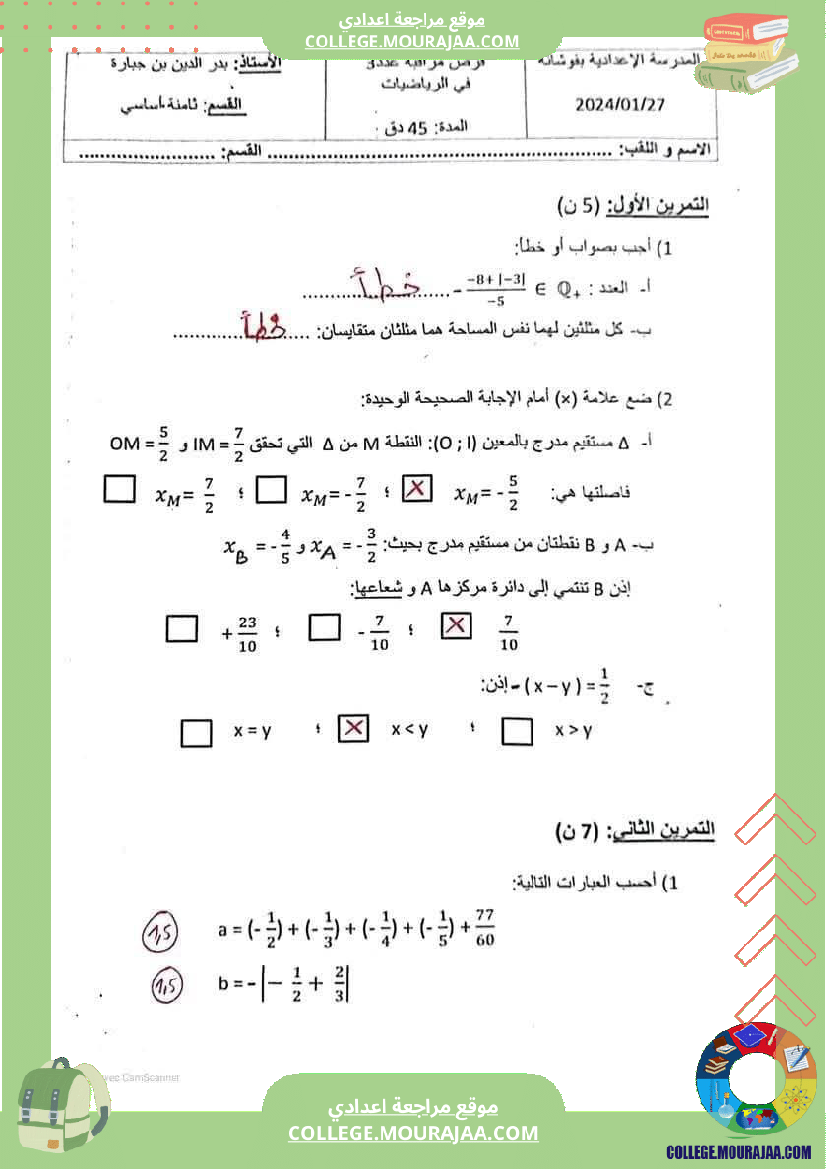 موقع مراجعة اعدادي
COLLEGE.MOURAJAA.COM
المدرسة الإعدادية بفوشانة
2024/01/27
فرض مراقبة عدد3
في الرياضيات
المدة: 45 دق
الأستاذ: بدر الدين بن جبارة
القسم: ثامنة أساسي
الاسم و اللقب: ............................................................ القسم: .........................
التمرين الأول: (5 ن)
1) أجب بصواب أو خطأ:
أ- العدد : -\frac{-8+|-3|}{-5} ∈ ℚ₊ ......خطأ......
ب- كل مثلثين لهما نفس المساحة هما مثلثان متقايسان: ......خطأ......
2) ضع علامة (×) أمام الإجابة الصحيحة الوحيدة:
أ- Δ مستقيم مدرج بالمعين (O ; I): النقطة M من Δ التي تحقق IM = 7/2 و OM = 5/2
فاصلتها هي: x_M = - 5/2 [X] ؛ x_M = - 7/2 [ ] ؛ x_M = 7/2 [ ]
ب- A و B نقطتان من مستقيم مدرج بحيث: x_A = - 3/2 و x_B = - 4/5
إذن B تنتمي إلى دائرة مركزها A و شعاعها:
7/10 [X] ؛ - 7/10 [ ] ؛ + 23/10 [ ]
ج- - ( x – y ) = 1/2 إذن:
x > y [ ] ؛ x < y [X] ؛ x = y [ ]
التمرين الثاني: (7 ن)
1) أحسب العبارات التالية:
a = (- 1/2) + (- 1/3) + (- 1/4) + (- 1/5) + 77/60 1,5
b = - |– 1/2 + 2/3| 1,5
CamScanner
موقع مراجعة اعدادي
COLLEGE.MOURAJAA.COM
COLLEGE.MOURAJAA.COM